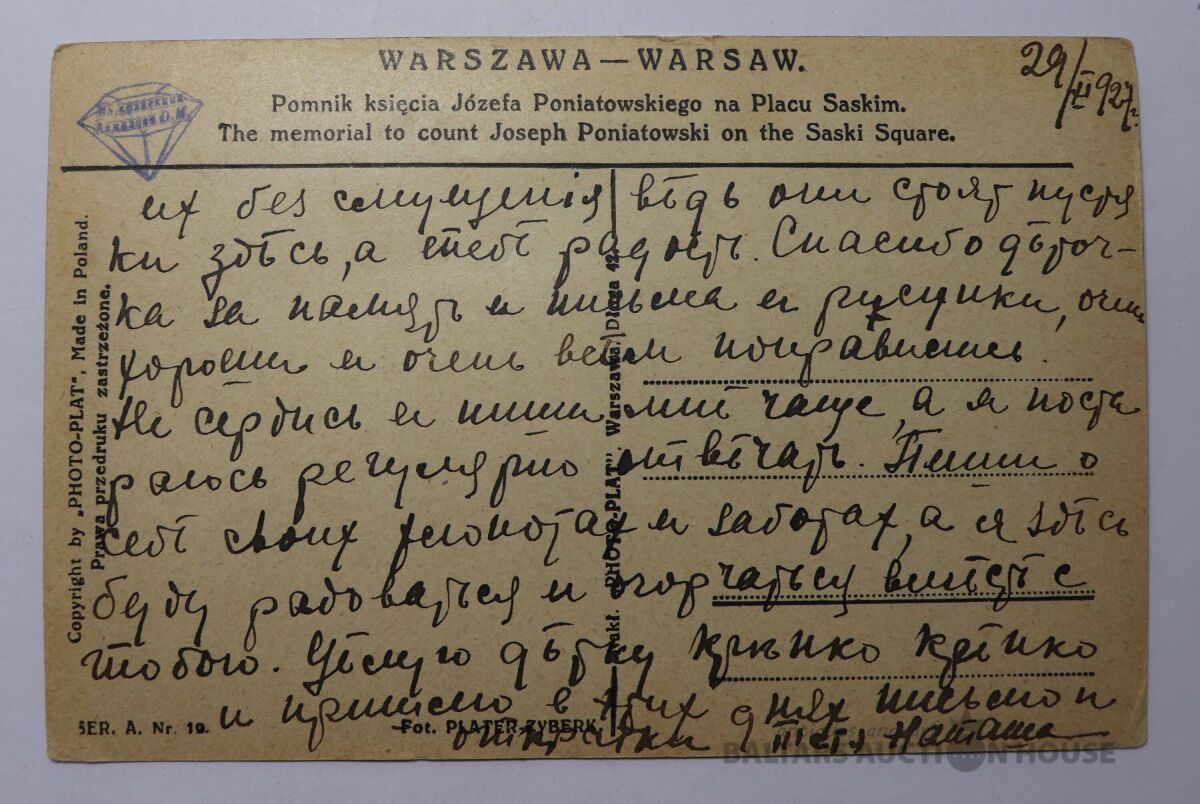 WARSZAWA — WARSAW.
Pomnik księcia Józefa Poniatowskiego na Placu Saskim.
The memorial to count Joseph Poniatowski on the Saski Square.
29/II 927 г.
Из коллекции
О.М.
их без смущенія вѣдь они стоят пустя
ки здѣсь, а тебѣ радость. Спасибо дѣточ-
ка за память и письма и рисунки, очень
хороши и очень всѣм понравились.
Не сердись и пиши мнѣ чаще, а я поста
раюсь регулярно отвѣчать. Пиши о
себѣ своих хлопотах и заботах, а я здѣсь
буду радоваться и огорчаться вмѣстѣ с
тобою. Цѣлую дѣтку крѣпко крѣпко
и пришлю в этих днях письмо и
открытки тетя Наташа
Copyright by „PHOTO-PLAT“, Made in Poland.
Prawa przedruku zastrzeżone.
Nakł. „PHOTO-PLAT“, Warszawa, Długa 42.
SER. A. Nr. 19.
Fot. PLATER-ZYBERK.
BALTARS AUCTION HOUSE